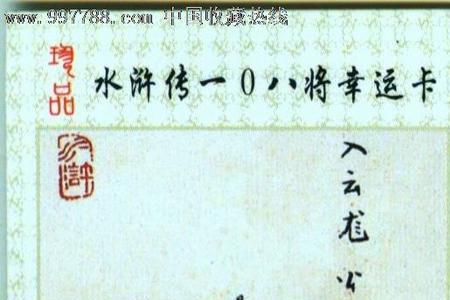 www.997788.com 中国收藏热线
珍品
水浒传一0八将幸运卡
水浒
入云龙 公